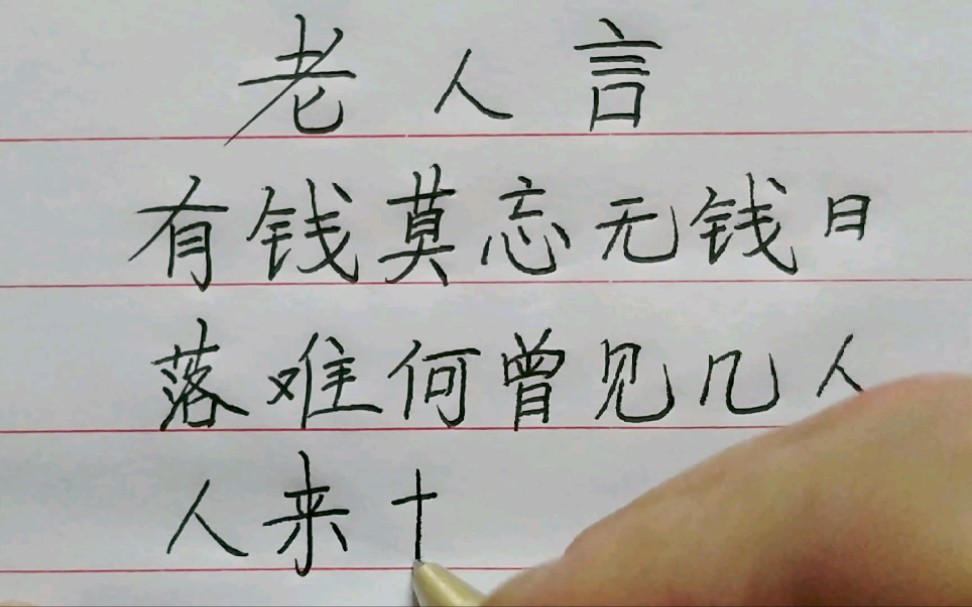 老人言
有钱莫忘无钱日
落难何曾见几人
人来十